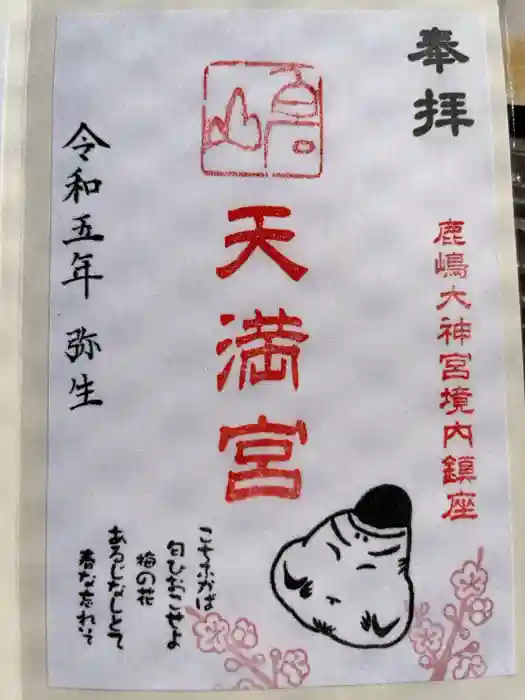 奉拝
鹿嶋大神宮境内鎮座
天満宮
令和五年 弥生
こちふかば
匂ひおこせよ
梅の花
あるじなしとて
春な忘れそ